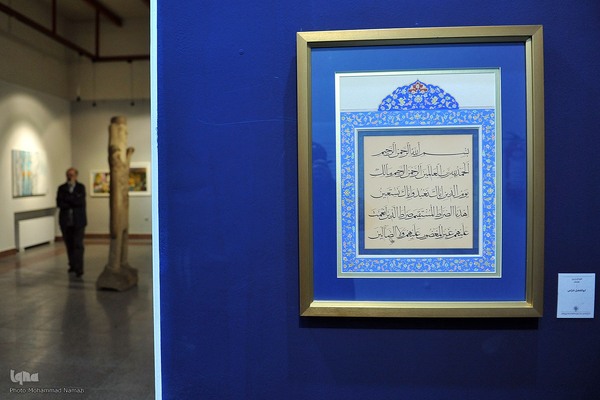 بسم الله الرحمن الرحيم
الحمد لله رب العالمين الرحمن الرحيم مالك
يوم الدين إياك نعبد وإياك نستعين
اهدنا الصراط المستقيم صراط الذين أنعمت
عليهم غير المغضوب عليهم ولا الضالين
iqna
Photo:Mohammad Namazi